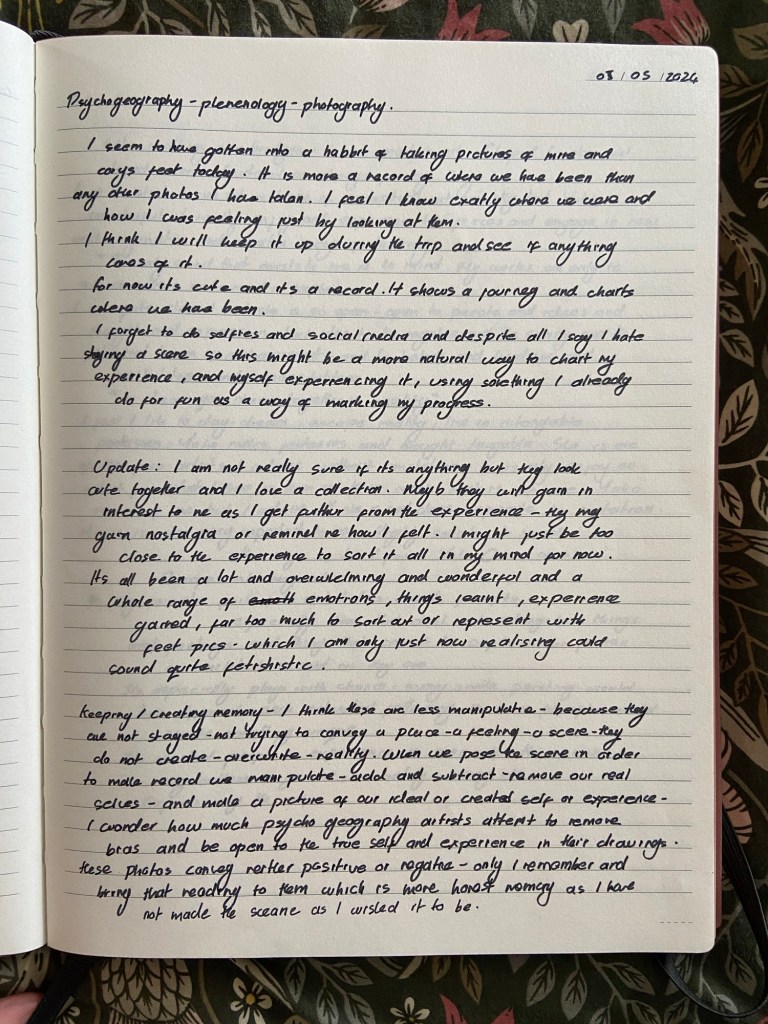 03/05/2024
Psychogeography - plenenology - photography.
I seem to have gotten into a habbit of taking pictures of mine and
corys feet today. It is more a record of where we have been than
any other photos I have taken. I feel I know exatly where we were and
how I was feeling just by looking at them.
I think I will keep it up during the trip and see if anything
comes of it.
for now its cute and its a record. It shows a journey and charts
where we have been.
I forget to do selfies and social media and despite all I say I hate
staging a scene so this might be a more natural way to chart my
experience, and myself experiencing it, using something I already
do for fun as a way of marking my progress.
Update: I am not really sure if its anything but they look
cute together and I love a collection. Mayb they will gain in
interest to me as I get further from the experience - they may
gain nostalgia or remind me how I felt. I might just be too
close to the experience to sort it all in my mind for now.
Its all been a lot and overwhelming and wonderful and a
whole range of emotions, things learnt, experience
gained, far too much to sort out or represent with
feet pics - which I am only just now realising could
sound quite fetishistic.
Keeping / creating memory - I think these are less manipulative - because they
are not staged - not trying to convey a place - a feeling - a scene - they
do not create - overwrite - reality. When we pose the scene in order
to make record we manipulate - add and subtract - remove our real
selves - and make a picture of our ideal or created self or experience -
I wonder how much psycho geography artists attempt to remove
bias and be open to the true self and experience in their drawings.
these photos convey neither positive or negative - only I remember and
bring that reading to them which is more honest memory as I have
not made the sceane as I wished it to be.